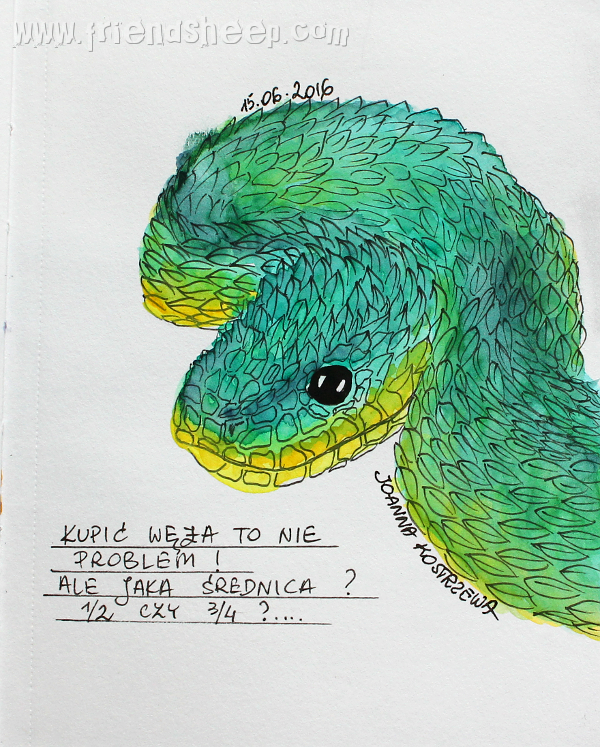 www.friendsheep.com
15.06.2016
KUPIĆ WĘŻA TO NIE
PROBLEM !
ALE JAKA ŚREDNICA ?
1/2 CZY 3/4 ?....
JOANNA KOSTRZEWA